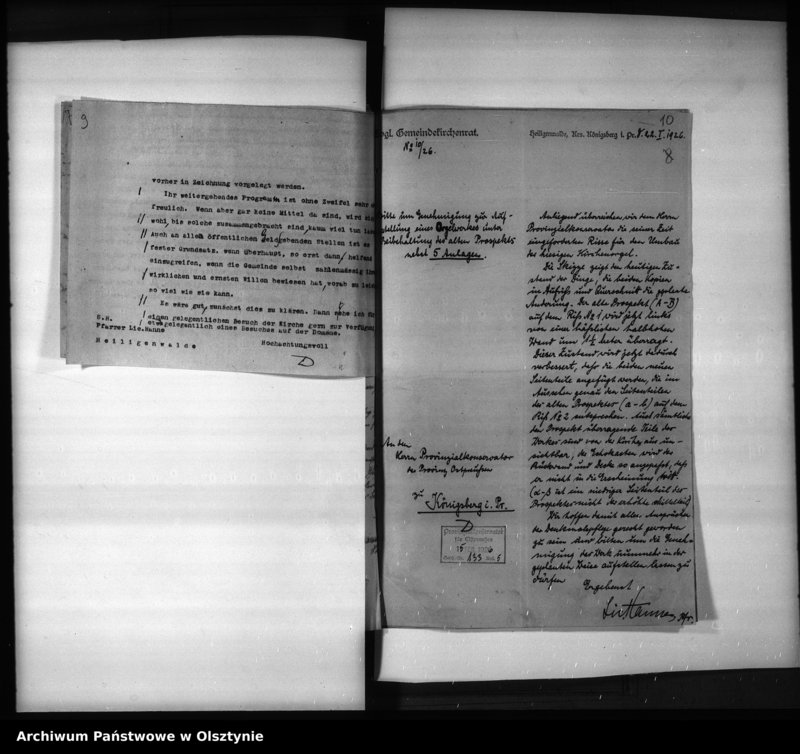 9
vorher in Zeichnung vorgelegt werden.
Ihr weitergehendes Programm ist ohne Zweifel sehr
freulich. Wenn aber gar keine Mittel da sind, wird
wohl, bis solche zusammengebracht sind, kaum viel tun
Auch an allen öffentlichen Geldgebenden Stellen ist es
fester Grundsatz, wenn überhaupt, so erst dann helfend
einzugreifen, wenn die Gemeinde selbst zahlenmässig
wirklichen und ernsten Willen bewiesen hat, vorab zu
so viel wie sie kann.
Es wäre gut, zunächst dies zu klären. Dann sehe ich
einen gelegentlichen Besuch der Kirche gern zur Verfügung
etwa gelegentlich eines Besuches auf der Domäne.
S.H.
Pfarrer Lic. Hanne
Heiligenwalde
Hochachtungsvoll
D
10
8
Gemeindekirchenrat.
Heiligenwalde, Krs. Königsberg i. Pr. 22. I. 1926.
No 10/26.
Bitte um Genehmigung zur Auf-
stellung eines Orgelwerkes unter
Beibehaltung des alten Prospekts
nebst 5 Anlagen.
An den
Herrn Provinzialkonservator
der Provinz Ostpreußen
zu
Königsberg i. Pr.
D
Provinzialkonservator
für Ostpreussen
1926
133
Anliegend überreichen wir dem Herrn
Provinzialkonservator die seiner Zeit
eingeforderten Risse für den Umbau
der hiesigen Kirchenorgel.
Die Skizze zeigt den heutigen Zu-
stand der Dinge, die beiden Kopien
im Aufriß und Querschnitt die geplante
Änderung. Der alte Prospekt (A-B)
auf dem Riß No 1 wird jetzt links
von einer häßlichen halbhohen
Wand um 1½ Meter überragt.
Dieser Zustand wird jetzt dadurch
verbessert, daß die beiden neuen
Seitenteile angefügt werden, die im
Aussehen genau den Seitenteilen
des alten Prospektes (a-b) auf dem
Riß No 2 entsprechen. Auch sämtliche
den Prospekt überragende Teile des
Werkes sind von der Kirche aus un-
sichtbar, der Echokasten wird der
Rückwand und Decke so angepaßt, daß
er nicht in die Erscheinung tritt.
ist ein niedriger Seitenteil des
Prospektes nicht der erhöhte Mittelteil
Wir hoffen damit allen Ansprüchen
der Denkmalspflege gerecht geworden
zu sein und bitten um die Geneh-
migung das Werk nunmehr in der
geplanten Weise aufstellen lassen zu
dürfen
Ergebenst
Lic Hanne, Pfr.
Archiwum Państwowe w Olsztynie